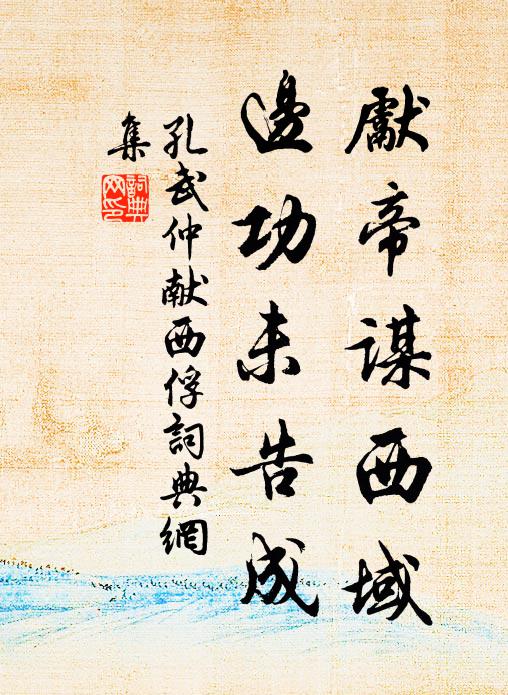 獻帝謀西域
邊功未告成
孔武仲献西俘詞典網
集
詞典
网印